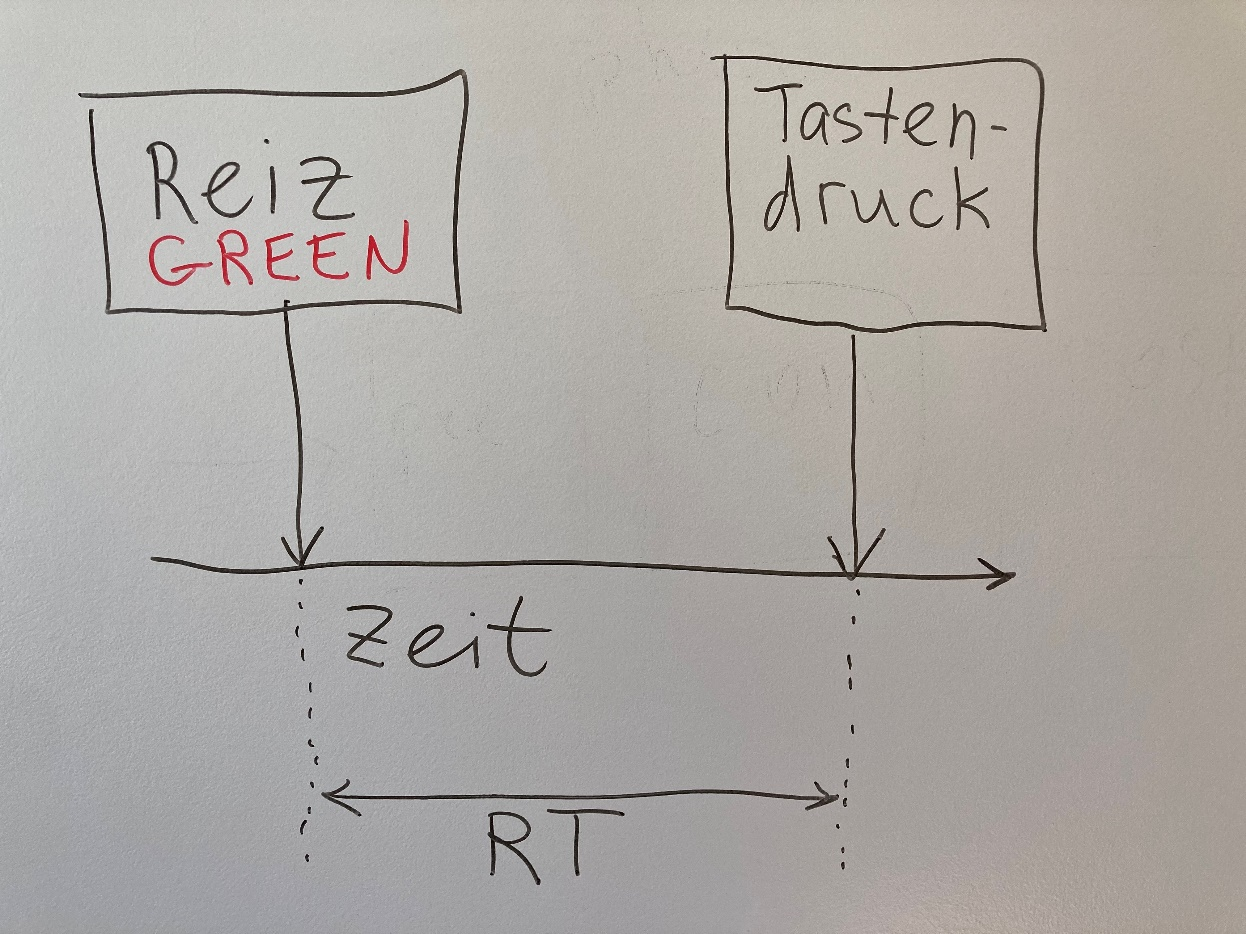 Reiz
GREEN
Tasten-
druck
Zeit
RT